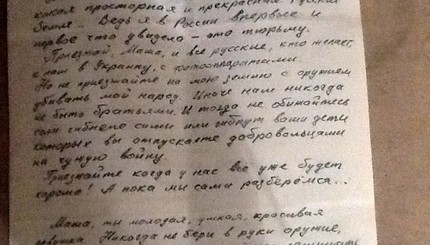 какая просторная и прекрасная Русская
Земля... Ведь я в России впервые и
первое что увидела - это тюрьму.
Приезжай, Маша, и все русские, кто желает,
к нам в Украину, с фотоаппаратами.
Но не приезжайте на мою землю с оружием
убивать мой народ. Иначе нам никогда
не быть братьями. И тогда не обижайтесь
если гибнете сами или гибнут ваши дети
которых вы отпускаете добровольцами
на чужую войну.
Приезжайте когда у нас всё уже будет
хорошо! А пока мы сами разберёмся..
Маша, ты молодая, умная, красивая
девушка. Никогда не бери в руки оружие,